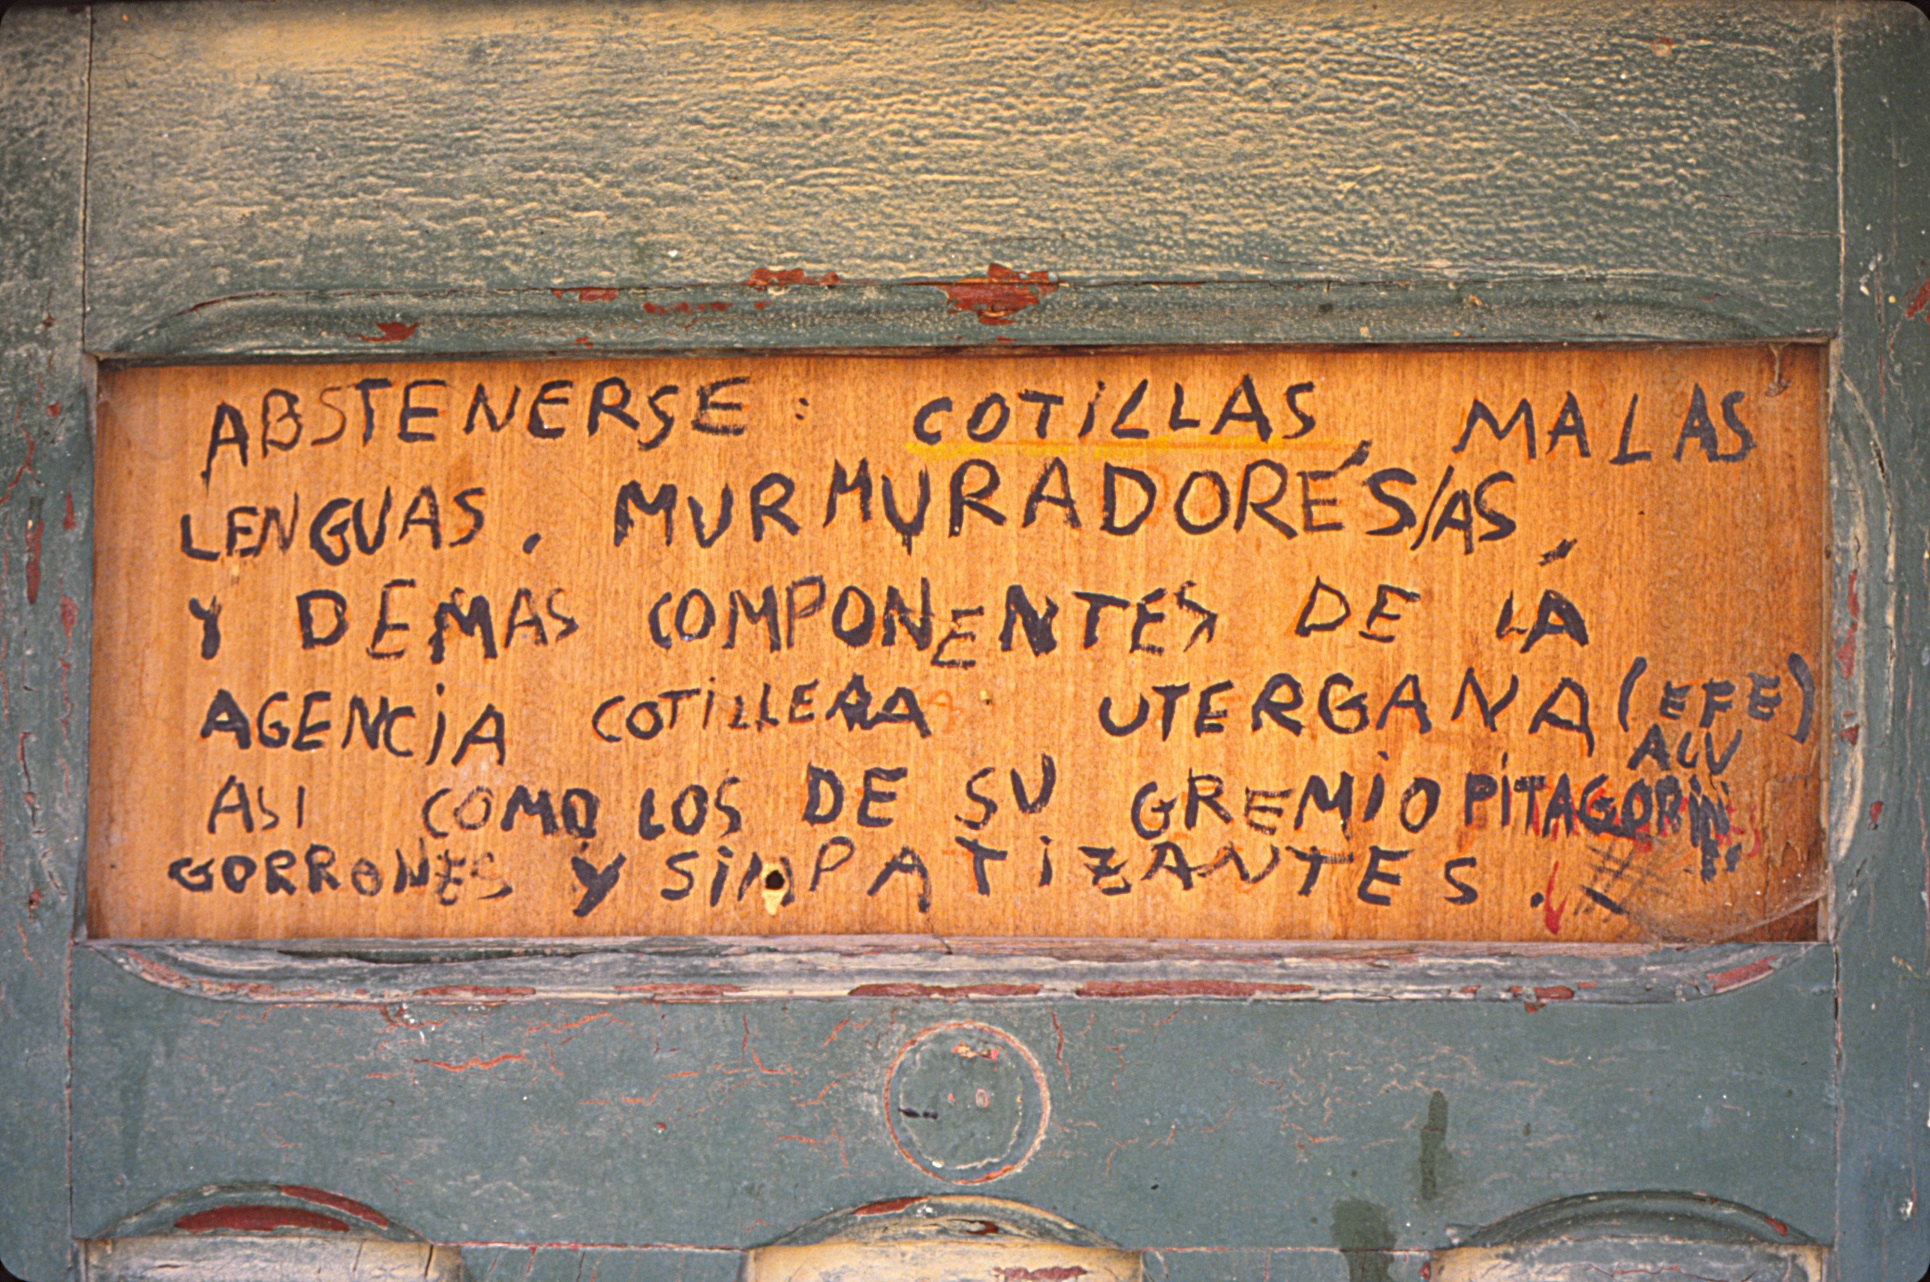 ABSTENERSE: COTiLLAS, MALAS
LENGUAS, MURMURADORES/AS,
Y DEMAS COMPONENTES DE LA
AGENCiA COTiLLERA UTERGANA (EFE)
ACU
ASI COMO LOS DE SU GREMiO PiTAGORiN
GORRONES Y SiMPATiZANTES.